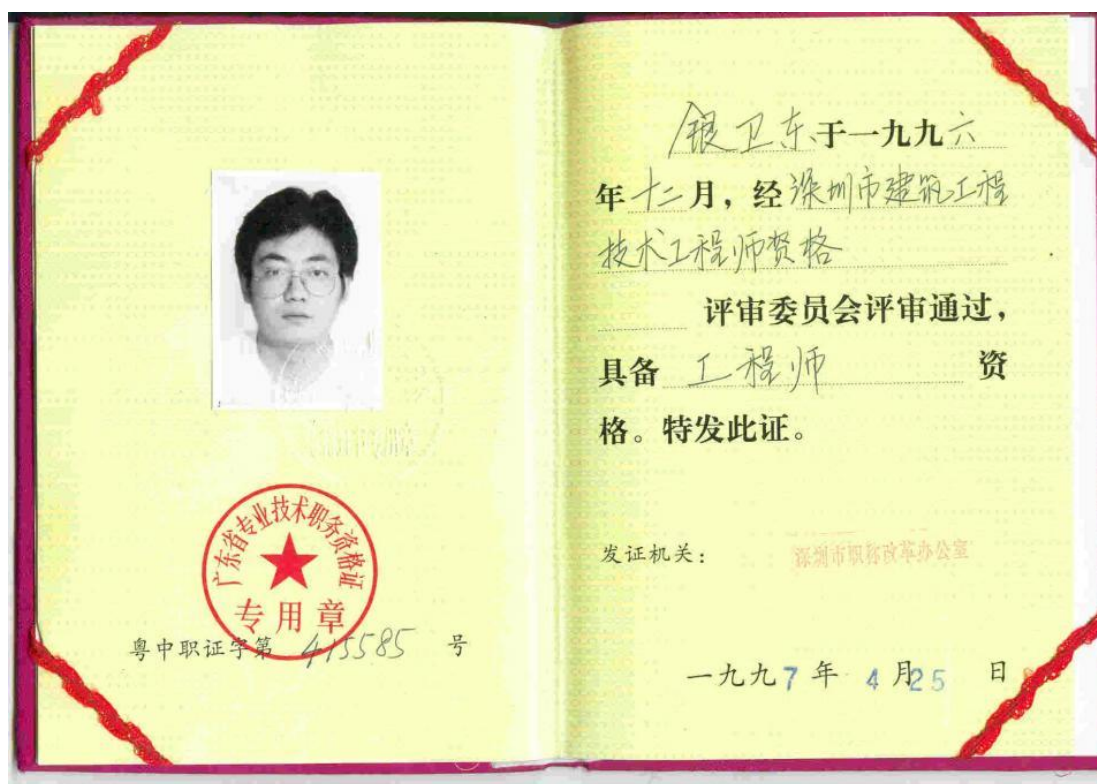 广东省专业技术职务资格证
专用章
粤中职证字第 415585 号
银卫东于一九九六
年十二月，经深圳市建筑工程
技术工程师资格
评审委员会评审通过，
具备 工程师 资
格。特发此证。
发证机关：
深圳市职称改革办公室
一九九7年 4月25日